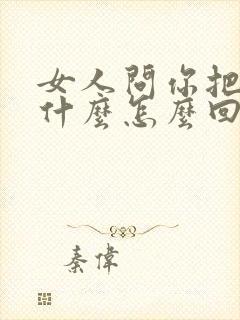 女人問你把
什麼怎麼回
秦偉